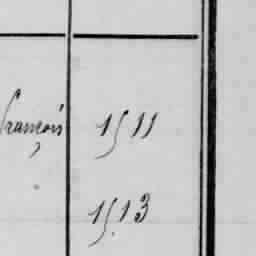 françois 1511
1513